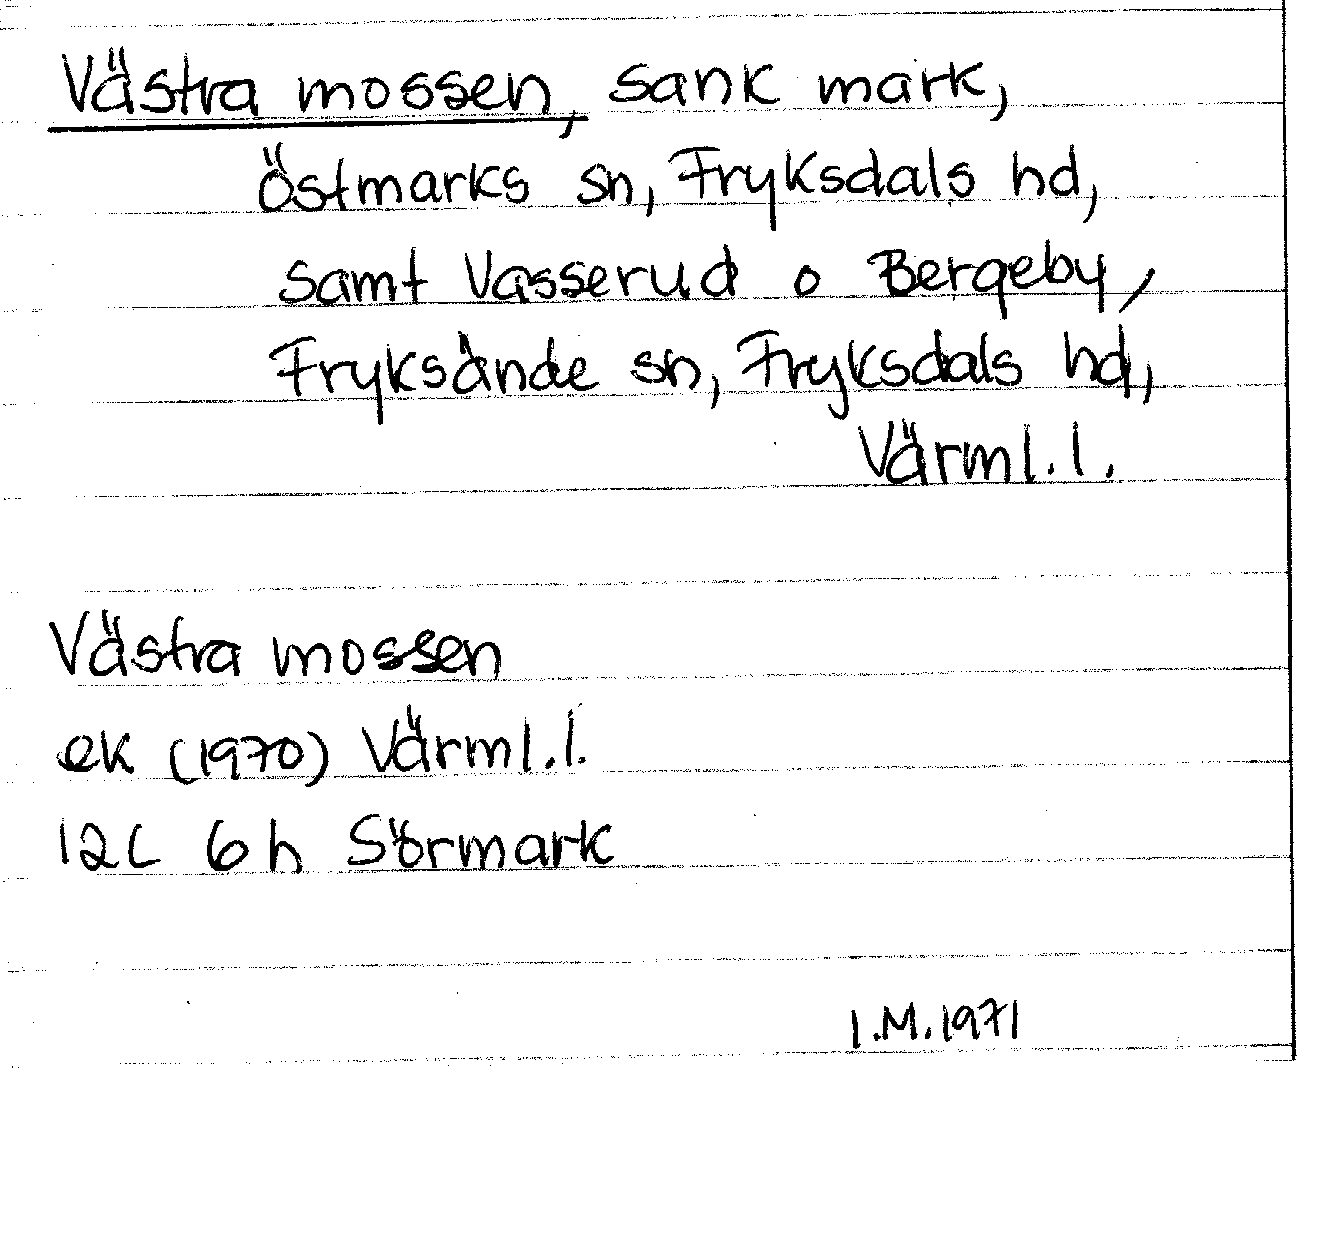 Västra mossen, sank mark,
Östmarks sn, Fryksdals hd,
samt Vasserud o Bergeby,
Fryksände sn, Fryksdals hd,
Värml.l.
Västra mossen
ek (1970) Värml.l.
12C 6h Sörmark
I.M.1971